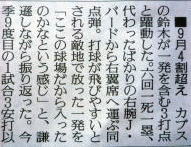 ■9月4割超え　カブス
の鈴木が一発を含む3打点
と躍動した。六回一死一塁、
代わったばかりの右腕J・
バードから右翼席へ運ぶ同
点弾。打球が飛びやすいと
される敵地で放った一発を
「ここの球場だから入った
のかなという感じ」と、謙
遜しながら振り返った。今
季9度目の1試合3安打以